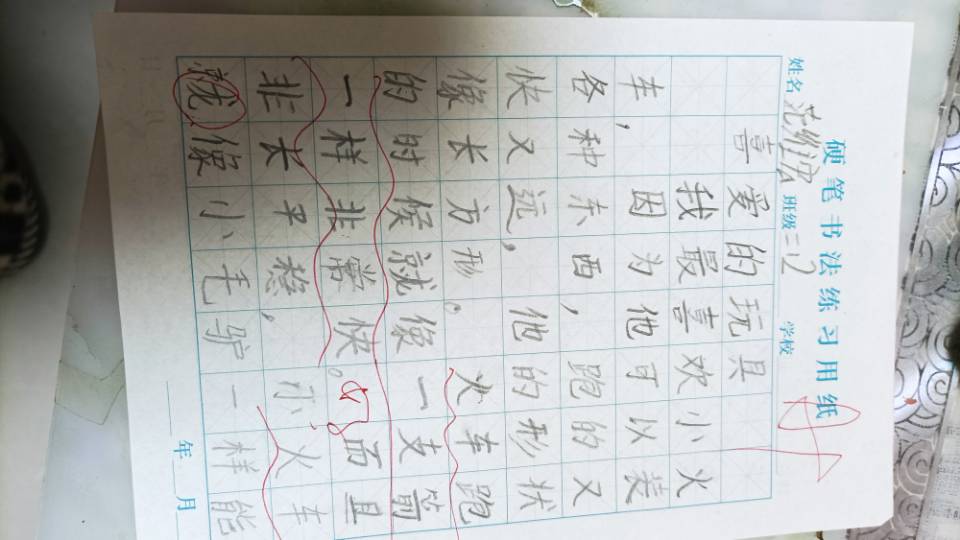 硬笔书法练习用纸
姓名 范 班级 二12 学校
喜爱的玩具
我最喜欢小火
车,因为他可以装
各种东西,跑的又
快又远,他的形状
像长方形。火车跑
的时候就像一支箭
一样非常快。而且
非长平熬,小火车
就像小毛驴一样能
年 月